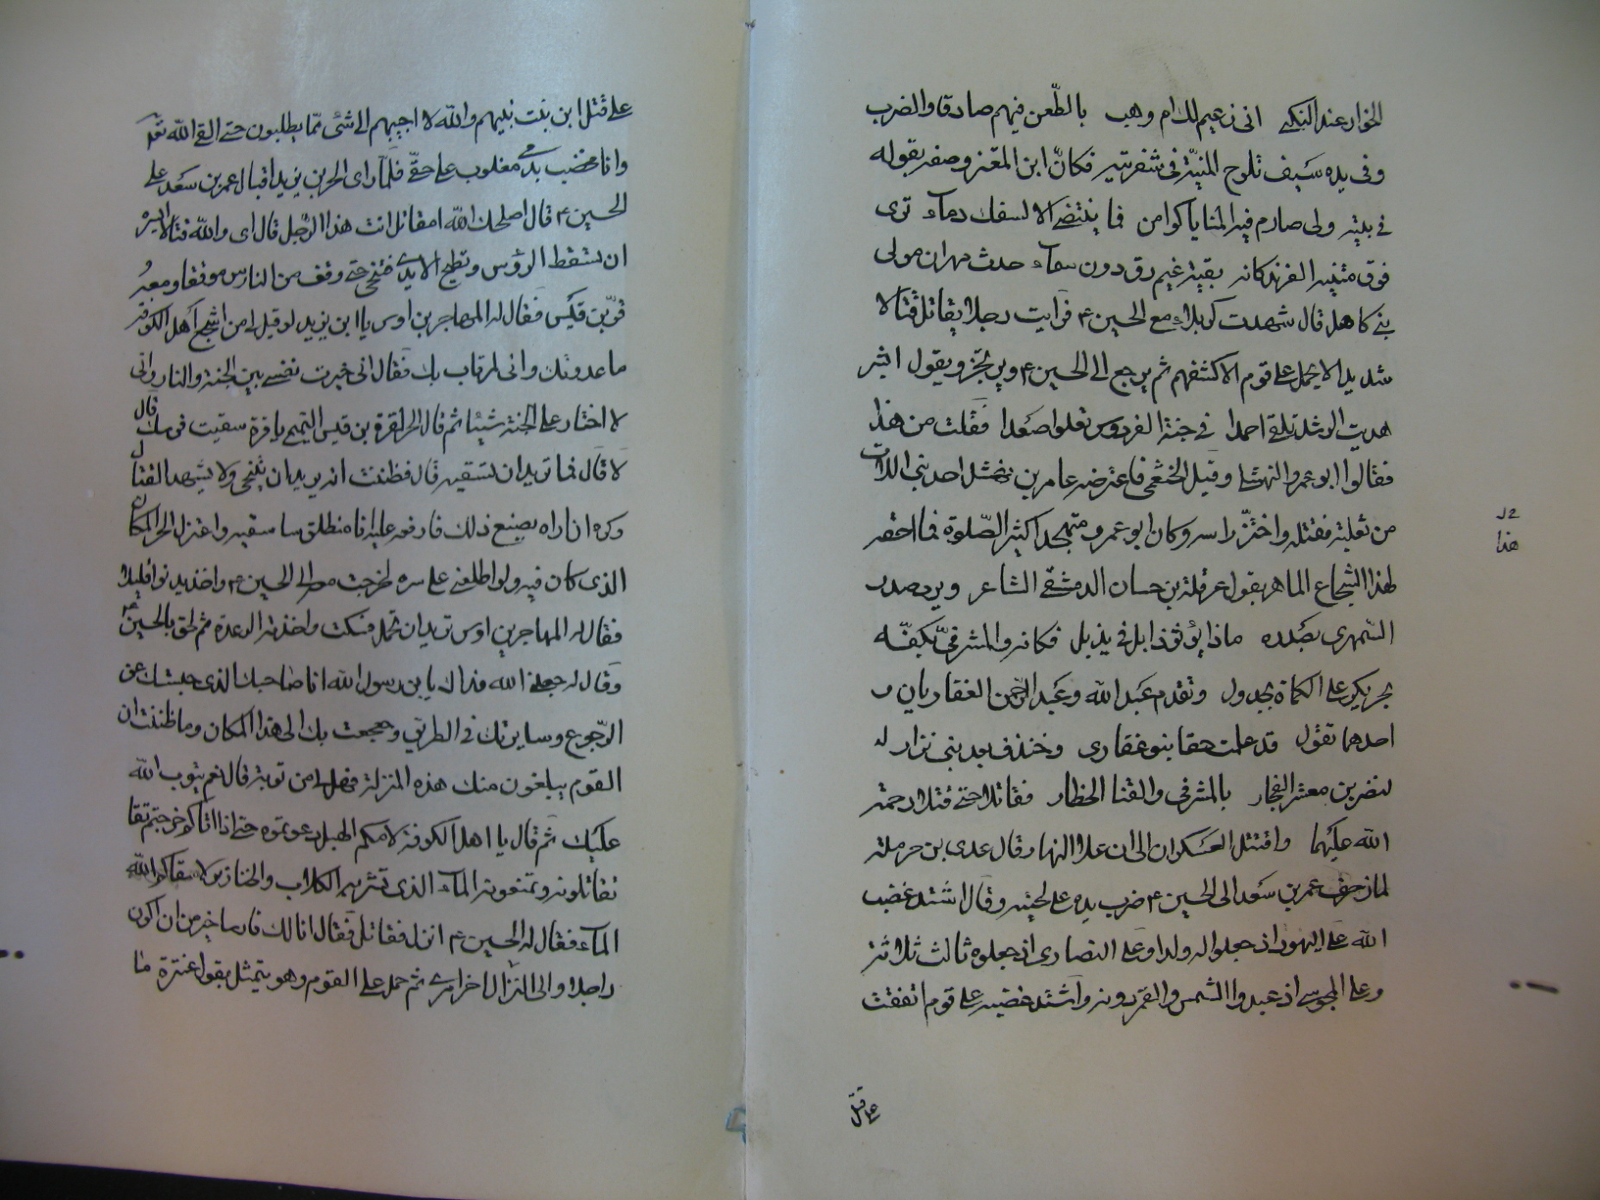 الخوار عند النكب انى زعيم لك ام وهب بالطّعن فيهم صادقا والضرب
وفى يده سيف تلوح المنيّة فى شفرتيه فكانّ ابن المعتز وصفه بقوله
فى بيتيه ولى صارم فيه المنايا كوامن فما ينتضى الا لسفك دمآء ترى
فوق متنيه الفرند كانه بقية غيم رق دون سمآء حدث مهران مولى
بنى كاهل قال شهدت كربلاء مع الحسين ع فرايت رجلا يقاتل قتالا
شديدا لا يحمل على قوم الا كشفهم ثم يرجع الى الحسين ع ويرتجز ويقول ابشر
هديت الرشد تلقى احمدا فى جنة الفردوس تعلوا صعدا فقلت من هذا
فقالوا ابو عمرو النهشلى وقيل الخثعمى فاعترضه عامر بن نهشل احد بنى اللات
من ثعلبة فقتله واختزّ راسه وكان ابو عمرو متهجدا كثير الصّلوة فما احقه
لهذا الشجاع الماهر بقول عرقلة بن حسان الدمشقى الشاعر ويرد صدر
السّمهرى بصدره ماذا يؤثر ذابل فى يذبل فكانه والمشرفىّ بكفّه
بحر يكر على الكماة بجدول وتقدم عبد الله وعبد الرحمن الغفاريان و
احدهما تقول قد علمت حقا بنو غفارى وخندف بعد بنى نزار له
لنضربن معشر الفجار بالمشرفى والقنا الخطار فقاتلا حتى قتلا رحمة
الله عليهما واقتتل العسكران الى ان علا النهار وقال عدى بن حرملة
لما زحف عمر بن سعد الى الحسين ع ضرب يده على لحيته وقال اشتد غضب
الله على اليهود اذ جعلوا له ولدا وعلى النصارى اذ جعلوه ثالث ثلاثة
وعلى المجوس اذ عبدوا الشمس والقمر دونه واشتد غضبه على قوم اتفقت
هذا
على قتل
على قتل ابن بنت نبيهم والله لا اجيبهم الى شئ ممّا يطلبون حتى القى الله تعد
وانا مخضب بدمى مغلوب على حقّى فلمّا راى الحر بن يزيد اقبال عمر بن سعد على
الحسين ع قال اصلحك الله امقاتل انت هذا الرّجل قال اى والله قتالا ايسره
ان تسقط الرؤس وتطيح الايدى فتنحى حتى وقف من الناس موقفا ومعه
قرّة بن قيس فقال له المهاجر بن اوس يا ابن يزيد لو قيل لى من اشجع اهل الكوفة
ما عدوتك وانى لمرتاب بك فقال انى خيرت نفسى بين الجنة والنار وانّى
لا اختار على الجنة شيئا ثم قال الحر لقرة بن قيس التميمى يا قرة سقيت فرسك قال
لا قال فما تريد ان تسقيه قال فظننت انه يريد ان يتنحى ولا يشهد القتال
وكره ان اراه يصنع ذلك فارفعه عليه انا منطلق ساسقيه واعتزل الحر المكان
الذى كان فيه ولو اطلعنى على سره لخرجت معه الى الحسين ع واخذ يدنو قليلا
فقال له المهاجر بن اوس تريد ان تحمل فسكت واخذته الرعدة ثم لحق بالحسين ع
وقال له جعلنى الله فداك يا بن رسول الله انا صاحبك الذى حبستك عن
الرّجوع وسايرتك فى الطريق وجعجعت بك الى هذا المكان وما ظننت ان
القوم يبلغون منك هذه المنزلة فهل لى من توبة قال نعم يتوب الله
عليك ثم قال يا اهل الكوفة لامكم الهبل دعوتموه حتى اذا اتاكم خرجتم تقا
تقاتلونه وتمنعونه المآء الذى تشربه الكلاب والخنازير لا سقاكم الله
المآء فقال له الحسين ع انزل فقاتل فقال انا لك فارسا خير من ان اكون
راجلا والى النزال اخر امرى ثم حمل على القوم وهو يتمثل بقول عنترة ما